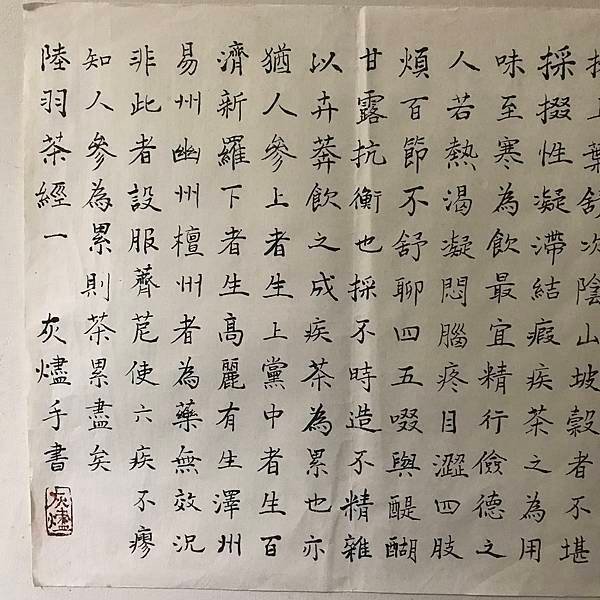 上葉舒次陰山坡穀者不堪
採掇性凝滯結瘕疾茶之為用
味至寒為飲最宜精行儉德之
人若熱渴凝悶腦疼目澀四肢
煩百節不舒聊四五啜與醍醐
甘露抗衡也採不時造不精雜
以卉莽飲之成疾茶為累也亦
猶人參上者生上黨中者生百
濟新羅下者生高麗有生澤州
易州幽州檀州者為藥無效況
非此者設服薺苨使六疾不廖
知人參為累則茶累盡矣
陸羽茶經一 灰燼手書
灰燼